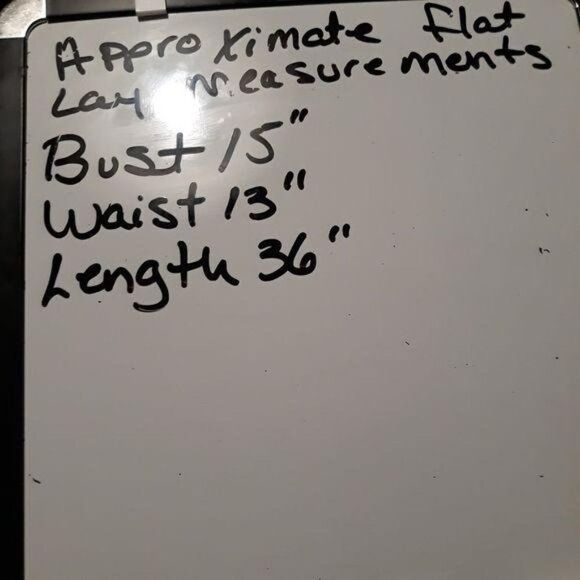 Approximate flat
Lay Measurements
Bust 15"
Waist 13"
Length 36"